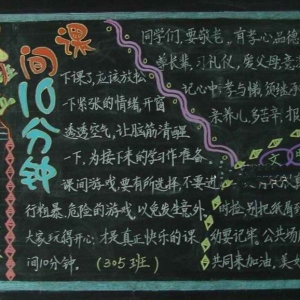 课间10分钟
下课了,应该放松一
下紧张的情绪,开窗
透透空气,让脑筋清醒
一下,为接下来的学习作准备。
课间游戏要有所选择,不要进
行粗暴、危险的游戏,以免发生意外。
大家玩得开心,才是真正快乐的课
间10分钟。(305班)
同学们,要敬老,有孝心,品德
单长辈,习礼仪,爱父母,意
记心中,孝与懒,须继承
亲养儿,多苦辛,报
文
时捡,别把纸屑
幼要记牢,公共场
共同来加油,美